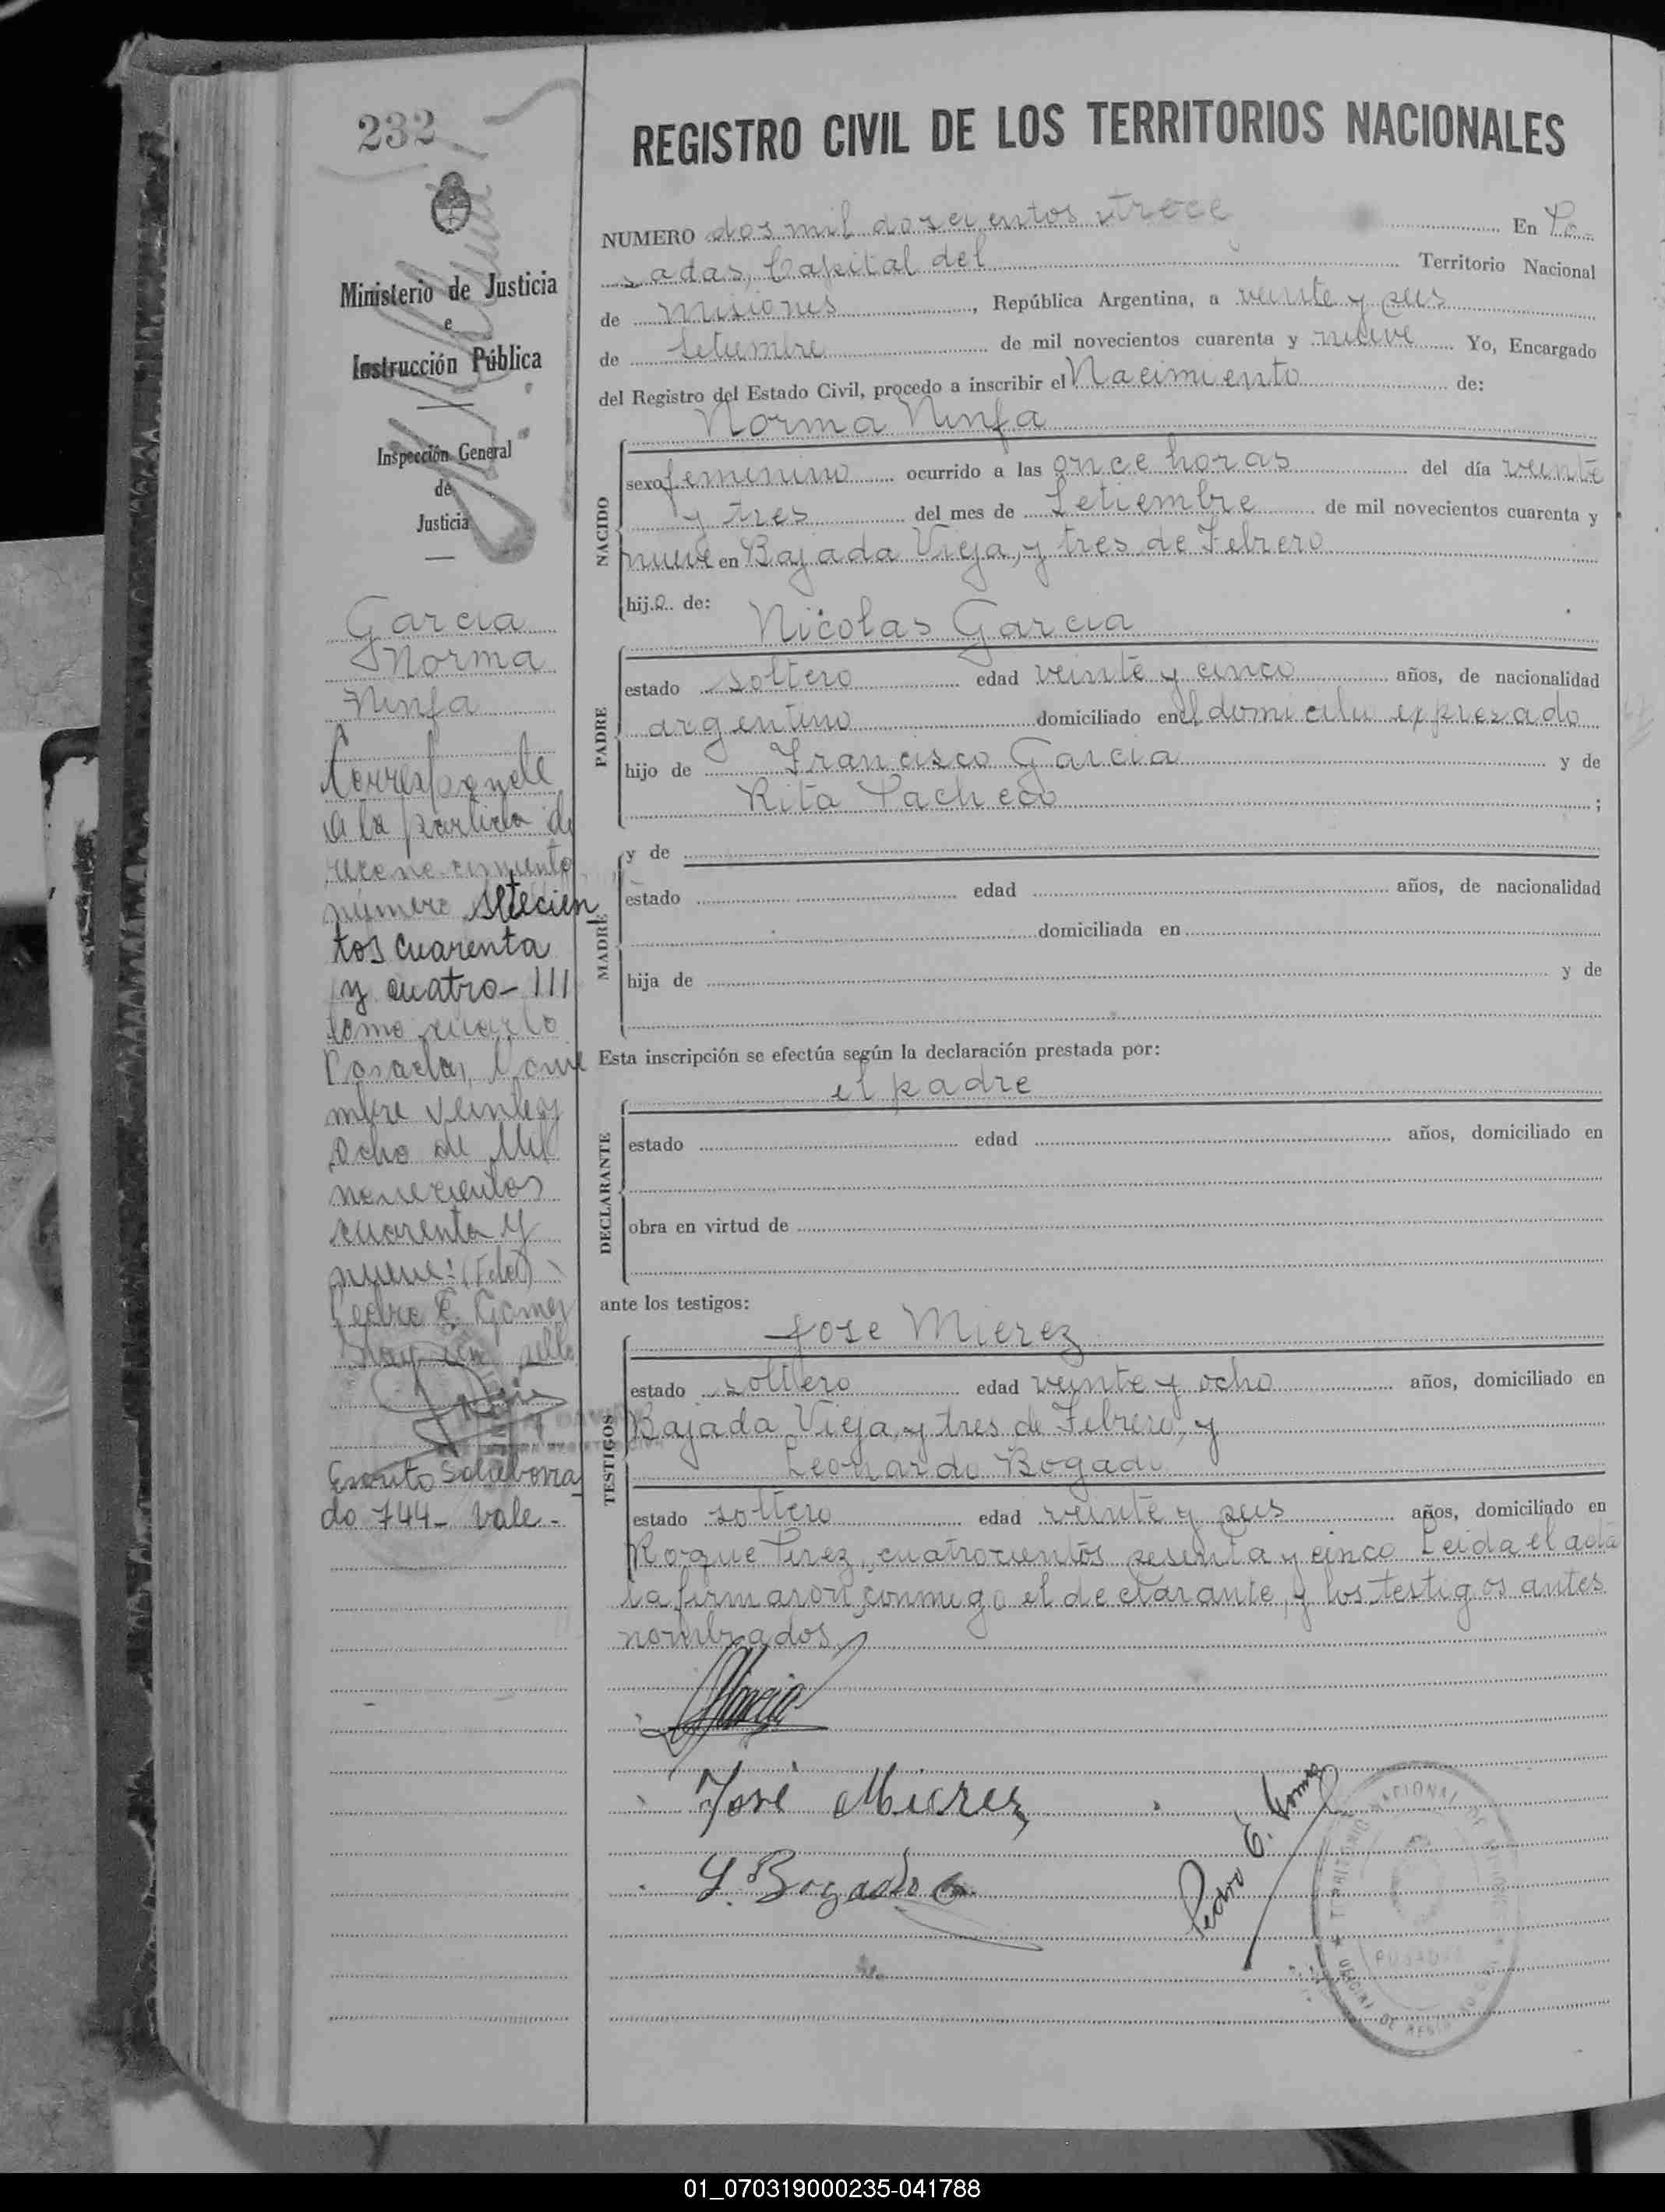 232
Ministerio de Justicia
e
Instrucción Pública
Inspección General
de
Justicia
Garcia
Norma
Ninfa
Corresponde
a la partida de
reconocimiento
número setecien
tos cuarenta
y cuatro- III
tomo cuarto
Posadas,
mbre veinte y
ocho de Mil
novecientos
cuarenta y
nueve: (Fdo)
Pedro E. Gomez
Hay un sello
Escrito Sobreborra
do 744- Vale-
REGISTRO CIVIL DE LOS TERRITORIOS NACIONALES
NUMERO dos mil doscientos trece En Po-
sadas, Capital del Territorio Nacional
de Misiones, República Argentina, a veinte y seis
de Setiembre de mil novecientos cuarenta y nueve Yo, Encargado
del Registro del Estado Civil, procedo a inscribir el Nacimiento de:
Norma Ninfa
NACIDO
sexo femenino ocurrido a las once horas del día veinte
y tres del mes de Setiembre de mil novecientos cuarenta y
nueve en Bajada Vieja, y tres de Febrero
hija de:
Nicolas Garcia
PADRE
estado soltero edad veinte y cinco años, de nacionalidad
argentino domiciliado en el domicilio expresado
hijo de Francisco Garcia y de
Rita Pacheco ;
MADRE
y de
estado edad años, de nacionalidad
domiciliada en
hija de y de
Esta inscripción se efectúa según la declaración prestada por:
el padre
DECLARANTE
estado edad años, domiciliado en
obra en virtud de
ante los testigos:
Jose Mierez
TESTIGOS
estado soltero edad veinte y ocho años, domiciliado en
Bajada Vieja, y tres de Febrero, y
Leonardo Bogado
estado soltero edad veinte y seis años, domiciliado en
Roque Perez, cuatrocientos sesenta y cinco Leida el acta
la firmaron conmigo el declarante, y los testigos antes
nombrados
Garcia
José Mierez
L. Bogado
Pedro E. Gomez
TERRITORIO NACIONAL DE MISIONES
POSADAS
OFICINA DE REGISTRO CIVIL
01_070319000235-041788